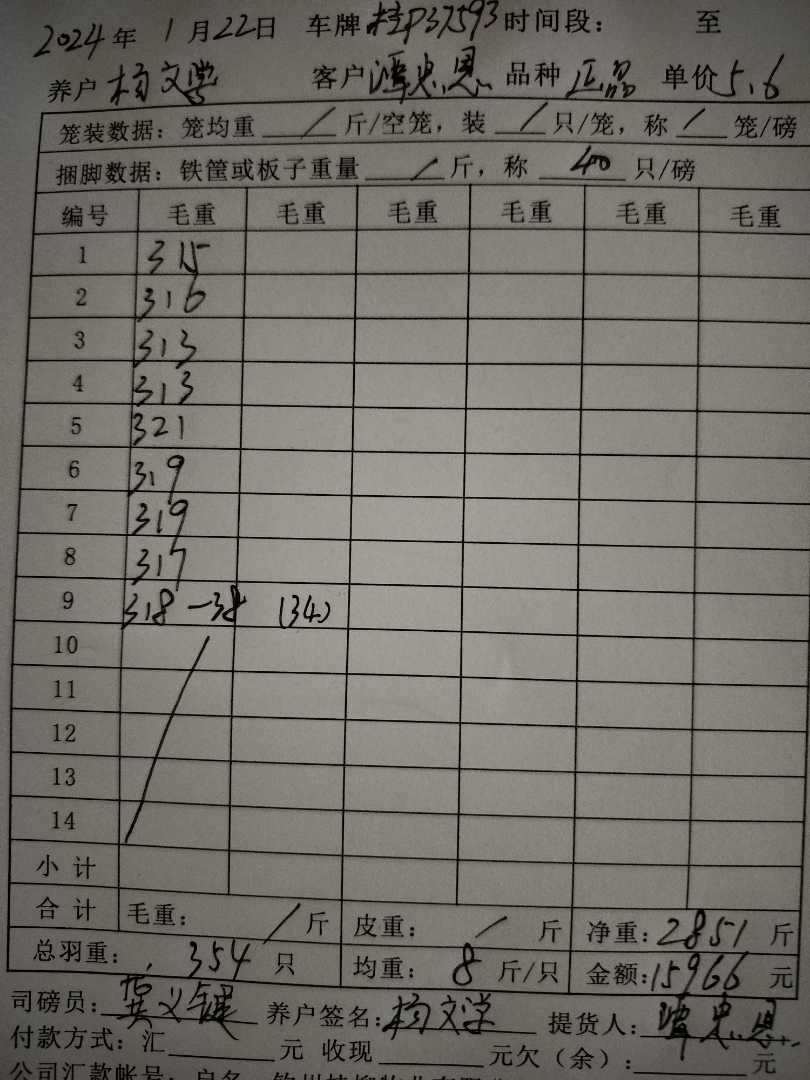 2024年 1月22日 车牌桂P37593时间段： 至
养户杨文学 客户潭忠恩 品种正品 单价5.6
笼装数据：笼均重 / 斤/空笼，装 / 只/笼，称 / 笼/磅
捆脚数据：铁筐或板子重量 / 斤，称 40 只/磅
编号 毛重 毛重 毛重 毛重 毛重 毛重
1 315
2 316
3 313
4 313
5 321
6 319
7 319
8 317
9 318-38 (34)
10
11
12
13
14
小计
合计 毛重： / 斤 皮重： / 斤 净重：2851 斤
总羽重： 354 只 均重： 8 斤/只 金额：15966 元
司磅员：龚义键 养户签名：杨文学 提货人：潭忠恩
付款方式：汇 元 收现 元欠（余）： 元
公司汇款帐号：户名